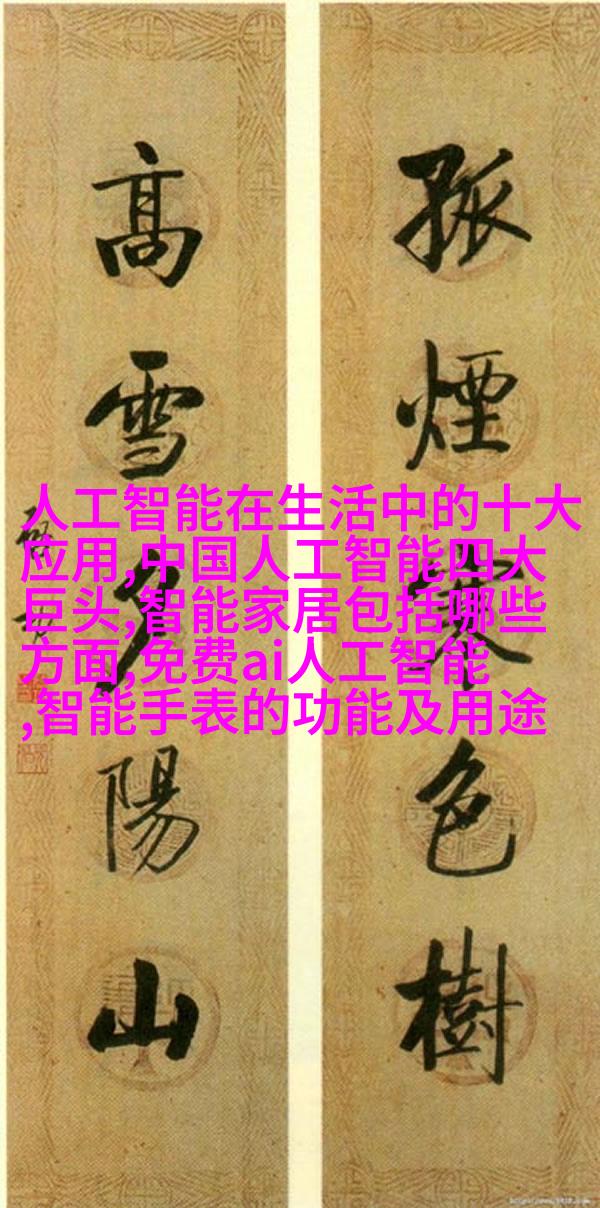 孤煙寒色樹
高雪夕陽山
人工智能在生活中的十大
应用,中国人工智能四大
巨头,智能家居包括哪些
方面,免费ai人工智能
,智能手表的功能及用途